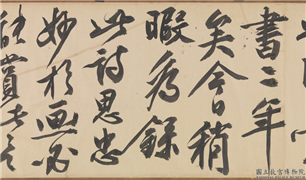 書二年
矣今日稍
暇為錄
此詩思忠
妙於畫必
能賞其
國立故宮博物院